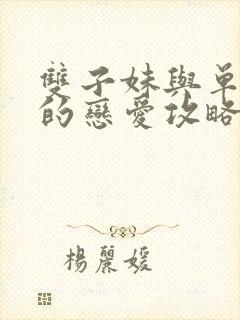 雙子妹與單
的戀愛攻略
楊麗媛